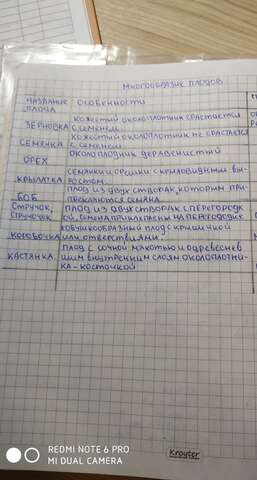 Многообразие плодов
Название плода
Особенности
Зерновка
кожистый околоплотник срастается с семенем
Семянка
кожистый околоплотник не срастается с семенем
Орех
околоплодник деравенистий
Крылатка
семянки и орешки с крыловидным выростом
Боб
плод из двух створак, которим прикрепляются семена
Стручок, стручочек
плод из двух створак с перегородкой, семена прикрепены на перегородке
Коробочка
коробушкообразный плод с крышичкой или отверствиями
Кастянка
плод с сочной мякотью и одревесневшим внутренним слоям околоплотника-косточкой
Krouter
REDMI NOTE 6 PRO
MI DUAL CAMERA